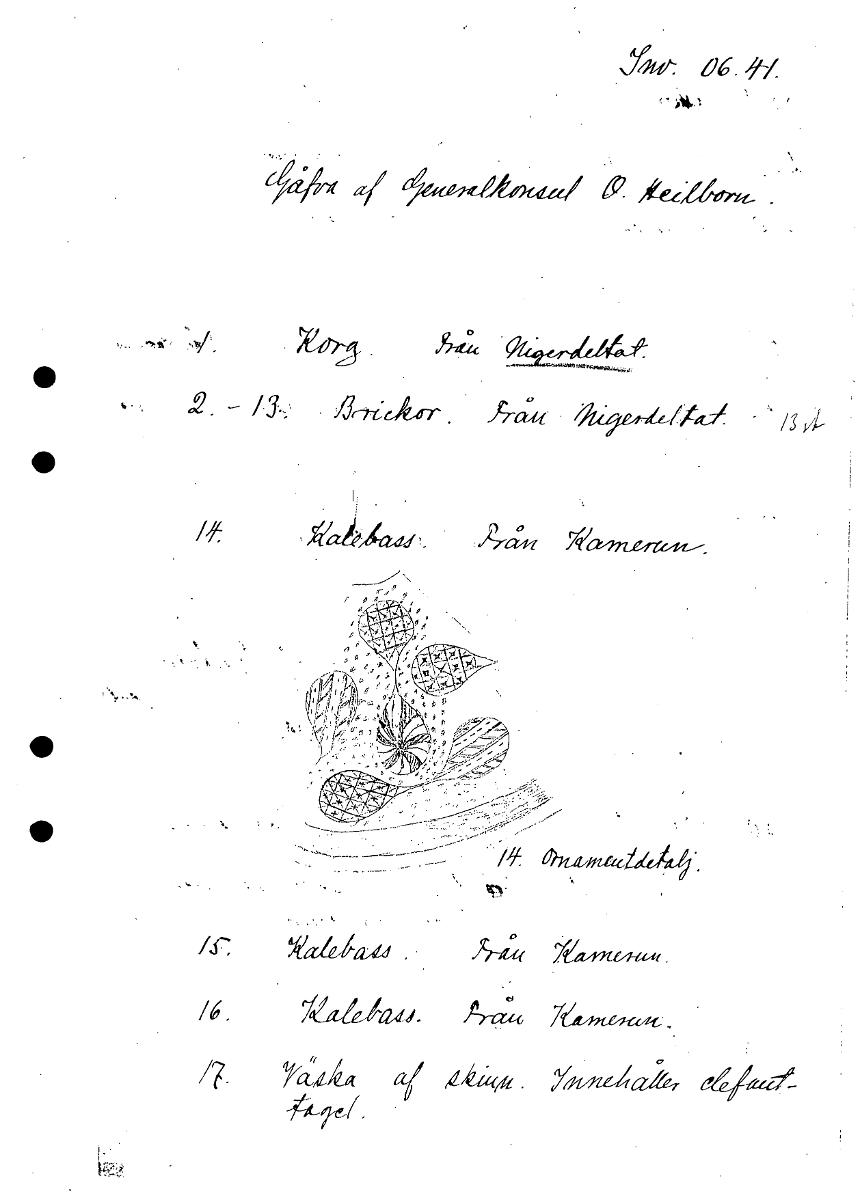 Inv. 06.41.
Gåfva af Generalkonsul O. Heilborn.
1. Korg. Från Nigerdeltat.
2.-13. Brickor. Från Nigerdeltat. 13 st
14. Kalebass. Från Kamerun.
14. Ornamentdetalj.
15. Kalebass. Från Kamerun.
16. Kalebass. Från Kamerun.
17. Väska af skinn. Innehåller elefant-
tagel.